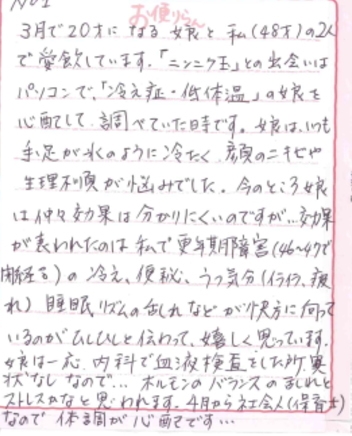 No1
お便りらん
3月で20才になる娘と私(48才)の2人
で愛飲しています。「ニンニク玉」との出会いは
パソコンで、「冷え症・低体温」の娘を
心配して調べていた時です。娘はいつも
手足が氷のように冷たく、顔のニキビや
生理不順が悩みでした。今のところ娘
は中々効果は分かりにくいのですが…効果
が表われたのは私で更年期障害(46~47で
閉経する)の冷え、便秘、うつ気分(イライラ、疲
れ)睡眠リズムの乱れなどが快方に向って
いるのがひしひしと伝わって、嬉しく思っています。
娘は一応、内科で血液検査をした所、異
状なしなので…ホルモンのバランスのみだれと
ストレスかなと思われます。4月から社会人(保育士)
なので体調が心配です…